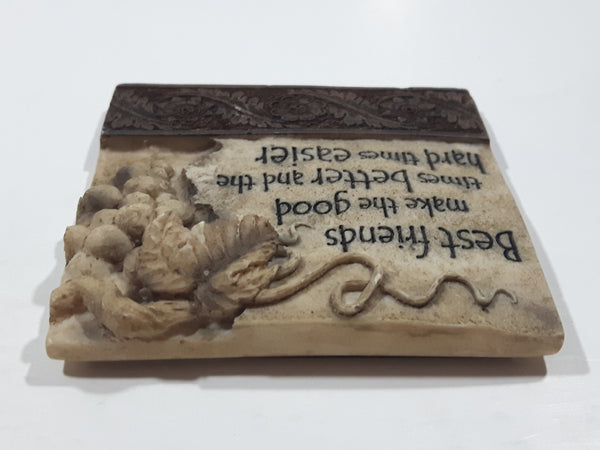 Best friends
make the good
times better and the
hard times easier